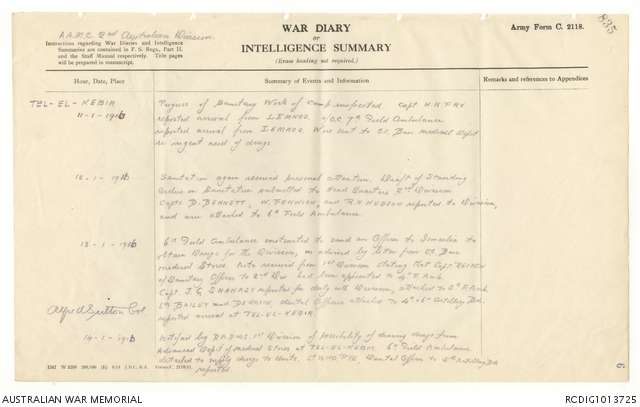 A.A.M.C. 2nd Australian Division.
WAR DIARY
or
INTELLIGENCE SUMMARY
(Erase heading not required.)
Army Form C. 2118.
835
Instructions regarding War Diaries and Intelligence
Summaries are contained in F. S. Regs., Part II.
and the Staff Manual respectively. Title pages
will be prepared in manuscript.
Hour, Date, Place
Summary of Events and Information
Remarks and references to Appendices
TEL-EL-KEBIR
11-1-1916
Progress of Sanitary Work of Camp inspected. Capt H.H. FRY
reported arrival from LEMNOS. O/C 7th Field Ambulance
reported arrival from LEMNOS. Wire sent to Base medical Depot
re urgent need of drugs.
12-1-1916
Sanitation again received personal attention. Draft of Standing
Orders on Sanitation submitted to Head Quarters 2nd Division
Capts D. BENNETT, W. FENWICK, and R.H. HUDSON reported to Division,
and were attached to 6th Field Ambulance.
13-1-1916
6th Field Ambulance instructed to send an Officer to Ismailia to
obtain Drugs for the Division, as advised by letter from Base
medical Stores. Note received from 1st Division stating that Capt
Sanitary Officer to 2nd Div had been appointed to F. Amb.
Capt J. G. SHARDAY reported for duty with Division, attached to 5th F. Amb.
Lt BAILEY and Dental Officers attached to 4th & 6th Artillery Bde
reported arrival at TEL-EL-KEBIR.
Alfred Sutton Col
14-1-1916
Notified by D.A.D.M.S. 1st Division of possibility of drawing drugs from
Advanced Depot of medical Stores at TEL-EL-KEBIR. 6th Field Ambulance
detailed to supply drugs to Units. Dental Officer to 5th Artillery Bde
reported.
6
AUSTRALIAN WAR MEMORIAL
RCDIG1013725